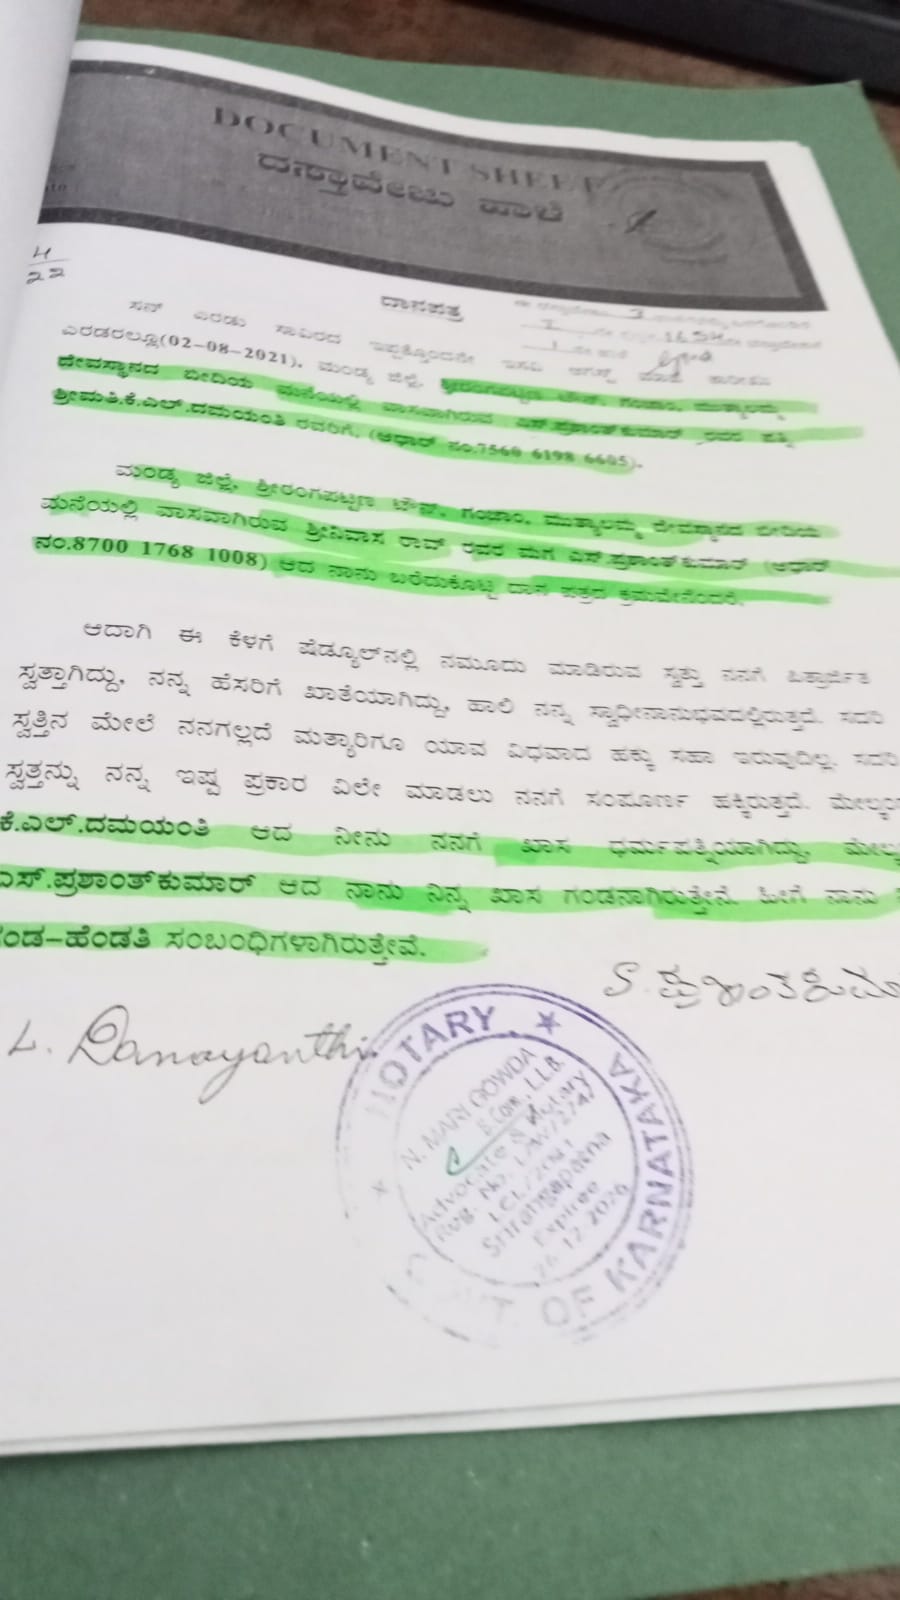 DOCUMENT SHEET
ದಸ್ತಾವೇಜು ಹಾಳೆ
4
22
ದಾನಪತ್ರ
ಸನ್ ಎರಡು ಸಾವಿರದ ಇಪ್ಪತ್ತೊಂದನೇ ಇಸವಿ ಆಗಸ್ಟ್ ಮಾಹೆ ತಾರೀಖು
ಎರಡರಲ್ಲೂ(02-08-2021), ಮಂಡ್ಯ ಜಿಲ್ಲೆ, ಶ್ರೀರಂಗಪಟ್ಟಣ ಟೌನ್, ಗಂಜಾಂ, ಮುತ್ಯಾಲಮ್ಮ
ದೇವಸ್ಥಾನದ ಬೀದಿಯ ಮನೆಯಲ್ಲಿ ವಾಸವಾಗಿರುವ ಎಸ್.ಪ್ರಶಾಂತ್‌ಕುಮಾರ್ ರವರ ಪತ್ನಿ
ಶ್ರೀಮತಿ.ಕೆ.ಎಲ್.ದಮಯಂತಿ ರವರಿಗೆ, (ಆಧಾರ್ ನಂ.7560 6198 6605),
ಮಂಡ್ಯ ಜಿಲ್ಲೆ, ಶ್ರೀರಂಗಪಟ್ಟಣ ಟೌನ್, ಗಂಜಾಂ, ಮುತ್ಯಾಲಮ್ಮ ದೇವಸ್ಥಾನದ ಬೀದಿಯ
ಮನೆಯಲ್ಲಿ ವಾಸವಾಗಿರುವ ಶ್ರೀನಿವಾಸ ರಾವ್ ರವರ ಮಗ ಎಸ್.ಪ್ರಶಾಂತ್‌ಕುಮಾರ್ (ಆಧಾರ್
ನಂ.8700 1768 1008) ಆದ ನಾನು ಬರೆದುಕೊಟ್ಟ ದಾನ ಪತ್ರದ ಕ್ರಮವೇನೆಂದರೆ,
ಆದಾಗಿ ಈ ಕೆಳಗೆ ಷೆಡ್ಯೂಲ್‌ನಲ್ಲಿ ನಮೂದು ಮಾಡಿರುವ ಸ್ವತ್ತು ನನಗೆ ಪಿತ್ರಾರ್ಜಿತ
ಸ್ವತ್ತಾಗಿದ್ದು, ನನ್ನ ಹೆಸರಿಗೆ ಖಾತೆಯಾಗಿದ್ದು, ಹಾಲಿ ನನ್ನ ಸ್ವಾಧೀನಾನುಭವದಲ್ಲಿರುತ್ತದೆ. ಸದರಿ
ಸ್ವತ್ತಿನ ಮೇಲೆ ನನಗಲ್ಲದೆ ಮತ್ಯಾರಿಗೂ ಯಾವ ವಿಧವಾದ ಹಕ್ಕು ಸಹಾ ಇರುವುದಿಲ್ಲ. ಸದರಿ
ಸ್ವತ್ತನ್ನು ನನ್ನ ಇಷ್ಟ ಪ್ರಕಾರ ವಿಲೇ ಮಾಡಲು ನನಗೆ ಸಂಪೂರ್ಣ ಹಕ್ಕಿರುತ್ತದೆ.
ಕೆ.ಎಲ್.ದಮಯಂತಿ ಆದ ನೀನು ನನಗೆ ಖಾಸ ಧರ್ಮಪತ್ನಿಯಾಗಿದ್ದು,
ಎಸ್.ಪ್ರಶಾಂತ್‌ಕುಮಾರ್ ಆದ ನಾನು ನಿನ್ನ ಖಾಸ ಗಂಡನಾಗಿರುತ್ತೇನೆ. ಹೀಗೆ ನಾನು
ಗಂಡ-ಹೆಂಡತಿ ಸಂಬಂಧಿಗಳಾಗಿರುತ್ತೇವೆ.
S. ಪ್ರಶಾಂತಕುಮಾ
L. Damayanthi
NOTARY
N. MARI GOWDA
B.Com., LL.B.
Advocate & Notary
Reg. No.
Srirangapatna
Expires
26.12.2026
GOVT. OF KARNATAKA